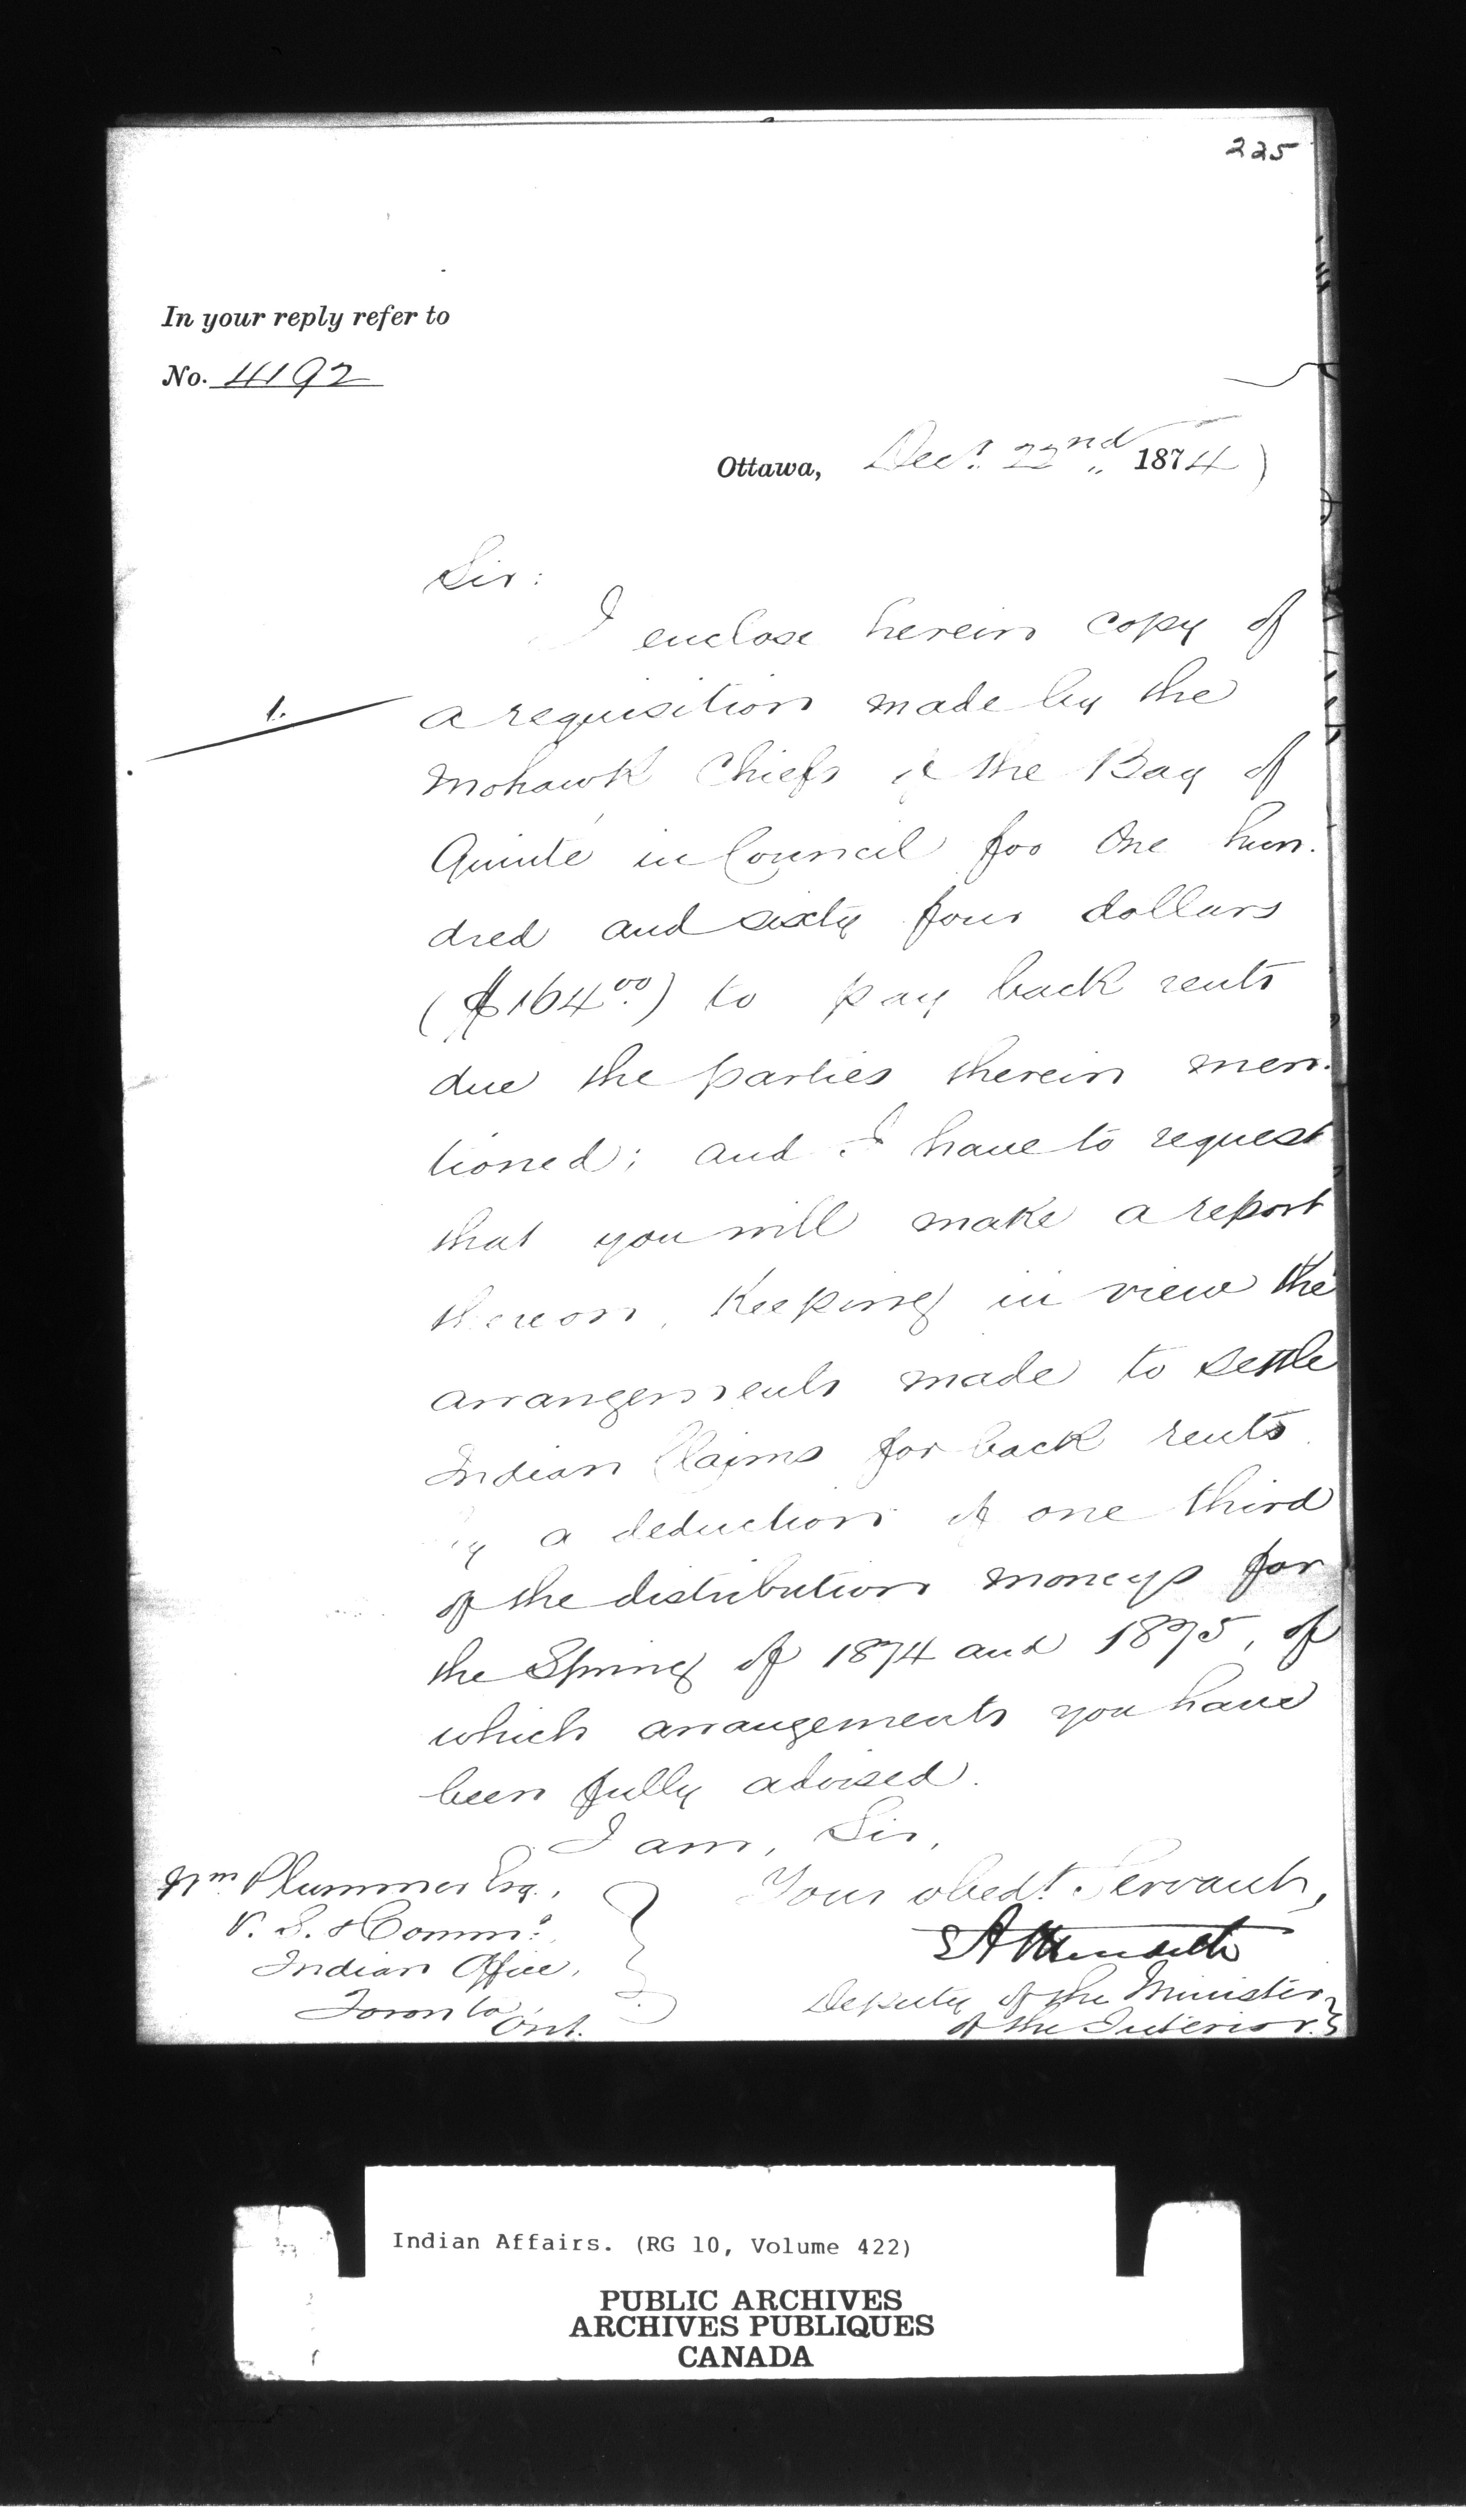 225
In your reply refer to
No. 4192
Ottawa, Decr. 22nd 1874
Sir:
I enclose herein copy of
1.
a requisition made by the
Mohawk Chiefs of the Bay of
Quinté in Council for One hun-
dred and sixty four dollars
($164.00) to pay back rents
due the parties therein men-
tioned; and I have to request
that you will make a report
thereon, keeping in view the
arrangements made to settle
Indian Claims for back rents
by a deduction of one third
of the distribution moneys for
the Spring of 1874 and 1875, of
which arrangements you have
been fully advised.
I am, Sir,
Your obedt. Servant,
Wm Plummer Esq.,
V. S. & Commr.
Indian Office,
Toronto,
Ont.
Deputy of the Minister
of the Interior.
Indian Affairs. (RG 10, Volume 422)
PUBLIC ARCHIVES
ARCHIVES PUBLIQUES
CANADA